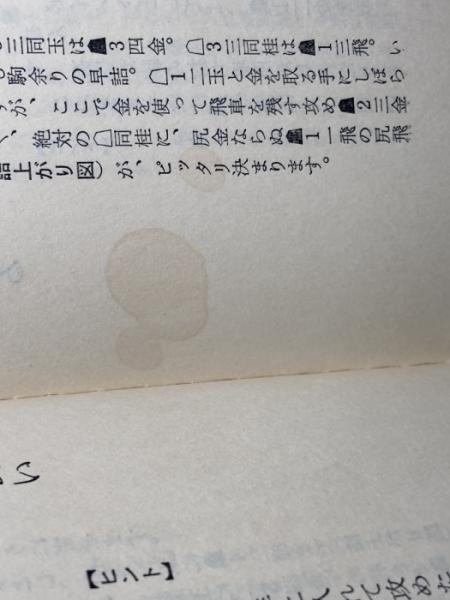 三同玉は☗3四金。☖3三同桂は☗1三飛。い
駒余りの早詰。☖1二玉と金を取る手にしぼら
が、ここで金を使って飛車を残す攻め☗2三金
、絶対の☖同桂に、尻金ならぬ☗1一飛の尻飛
詰上がり図)が、ピッタリ決まります。
い
【ヒント】
て攻めな